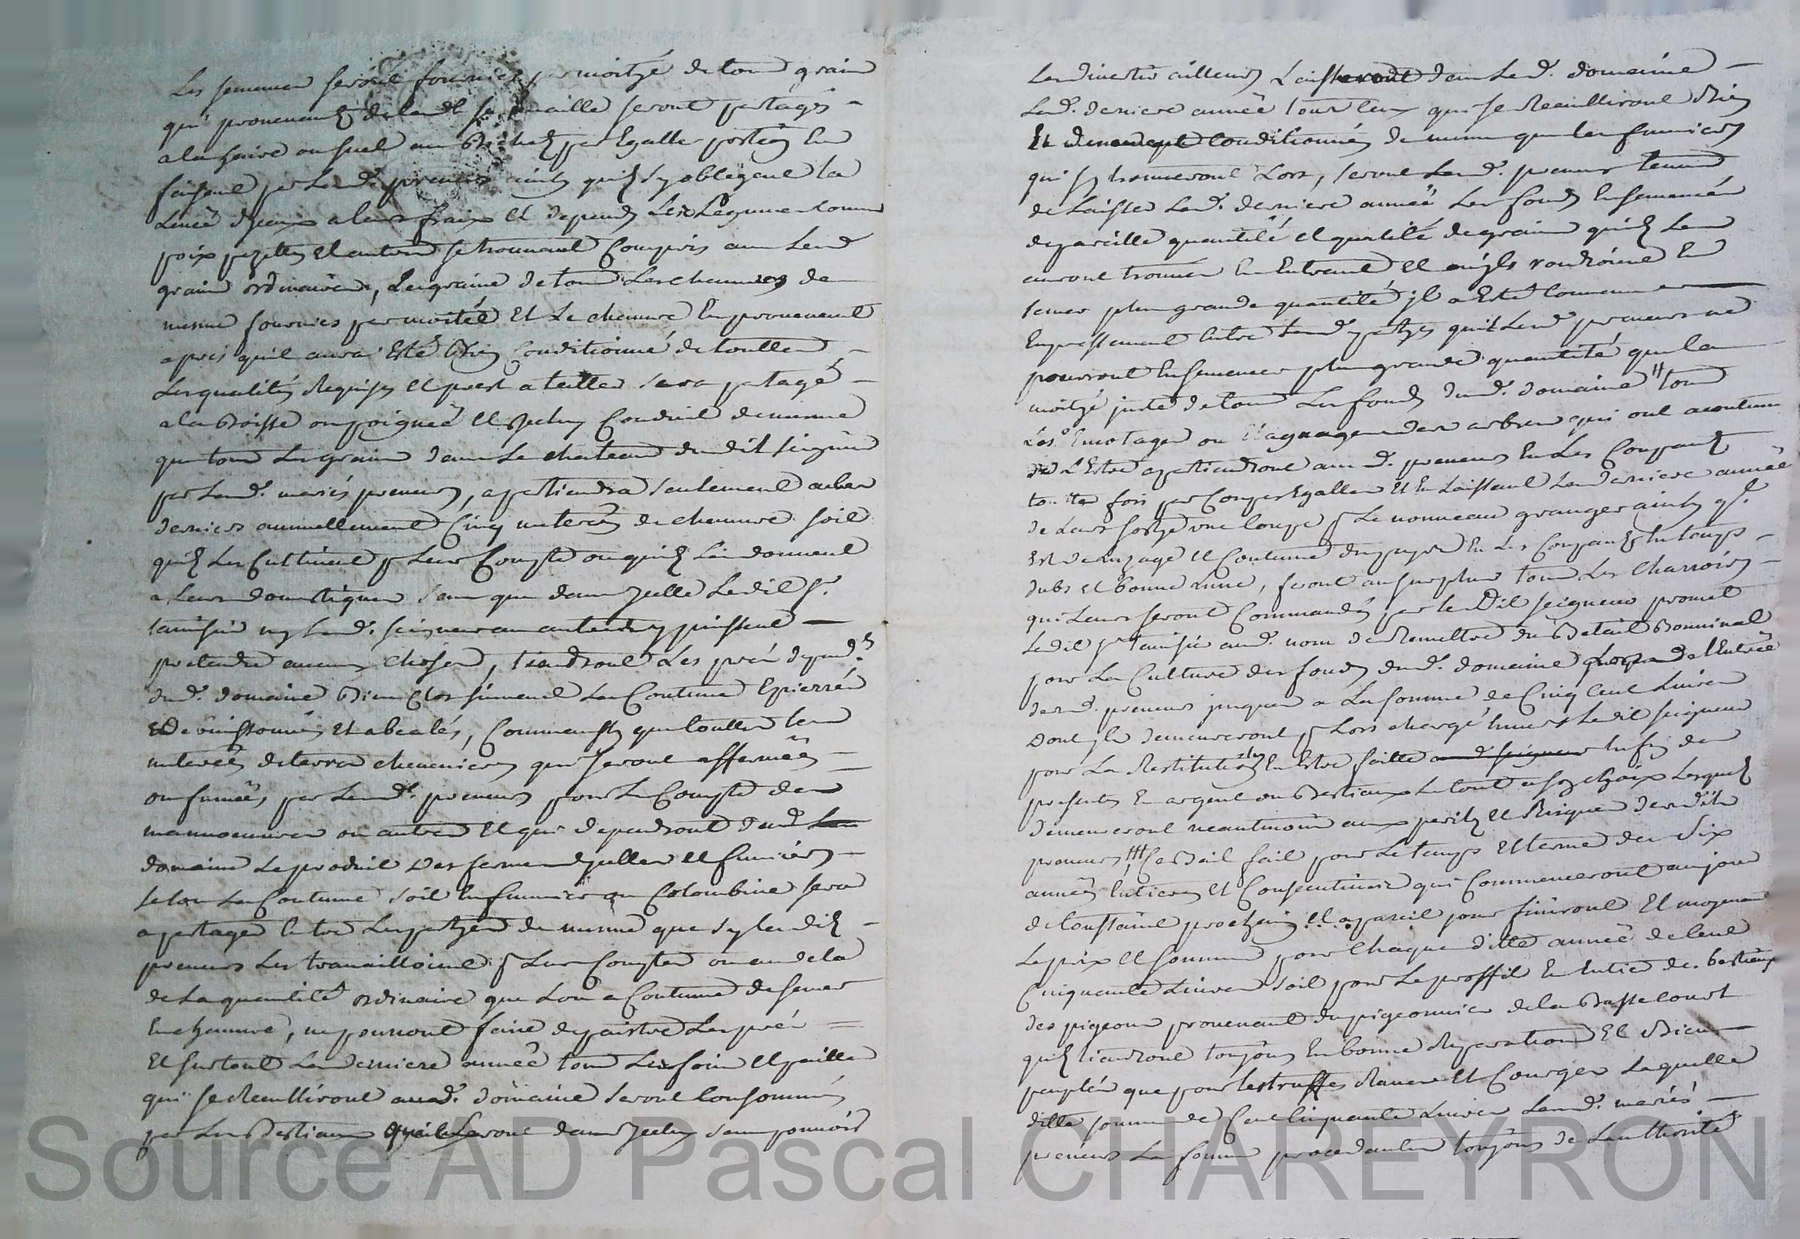 Les semences seront fournies par moityé de tous grains
qui provenants de land. semaille seront partagés
a la faire ou suel au Bichet par Egalles portions En
faisant par Lesd. preneurs ainsy quils s'y obligent la
Levée d'yceux a leurs fraix et depends Les Legumes comme
poix pezettes Et autres se trouvant Compris aux Lesd.
grains ordinaires, Les graines de tous Les chenevres de
mesme fournies par moitié Et Le chenvre En provenent
apres quil aura Esté Bien Conditionné de touttes
Les qualités Requises Et prest a teiller sera partagé
a la Boisse ou poignée Et Iceluy Conduit de mesme
que tous Les grains dans Le chateau du dit seigneur
par Lesd. mariés preneurs, apartiendra seulement aux
derniers annuellement Cinq meterés de chenvre soit
quils Les Cultivent pr Leur Compte ou quils Les donnent
a Leurs domestiques sans que dans Jcelle Ledit sr.
tansie ny Led. seigneur au autre y puissent
pretendre aucune choses, tiendront Les prés depend.ts
dud. domaine Bien Clos suivent La Coutume Epierrés
Et Abealés, Comme aussy que touttes Les
meterées de terres chenevieres qui seront affermées
ou fumées par Lesd. preneurs pour Le Compte des
manoeuvres ou autres Et qui dependront dud.
domaine Le produit des fermes dycelles Et fumiers
selon La Coutume soit En fumier ou Colombine sera
a partager Entre Les partyes de mesme que sy Lesdits
preneurs Les travailloient pr Leur Compte ou au dela
de La quantité ordinaire que Lon a Coutume de semer
En chenvre, ne pouront faire depaistre Les prés
Et surtout La derniere année tous Les foins Et pailles
qui se Recuilliront aud. domaine seront Consommés
par Les Bestiaux quils auront dans Jceluy sans pouvoir
Les divertir ailleurs Laisseront dans Led. domaine
Lad. derniere année tous Ceux qui se Recuilliront Bien
Et Conditionnés de mesme que Les fumiers
qui s'y trouveront Lors, seront Lesd. preneurs tenus
de Laisser Lad. derniere année Les fonds Ensemencés
de pareille quantité Et qualité de grains quils Les
auront trouvés En Entrent Et ou ils voudroient En
semer plus grande quantité jl a Esté Convenu
Expressement Entre Lesd. partyes quils Lesd. preneurs ne
pourront Ensemencer plus grande quantité que la
moityé juste de tous Les fonds dud. domaine tous
Les Emotages ou Elaguages des arbres qui ont acoutumé
de L'Estre apartiendront aux d. preneurs En Les Coupant
toutte fois par Coupes Egalles Et En Laissant La derniere année
de Leur sortye une Coupe pr Le nouveau granger ainsy q.
Est d'uzage Et Coutume du payx En Les Coupants En temps
dubs et bonne Lune, feront au surplus tous Les charrois
qui Leurs seront Commandés par le dit seigneur promet
Ledit sr tansie aud. nom de Remettre du Betail Bouvinal
pour La Culture des fonds dud. domaine Lors de l'Entrée
desd. preneurs jusques a La somme de Cinq Cent Livres
dont jls demeureront pr Lors chargé Envers Ledit seigneur
pour La Restitution En Estre faitte aud. seigneur En fin des
presentes En argent ou Bestiaux Le tout a son choix Lesquels
demeureront neantmoins aux perils Et Risques desdits
preneurs Ce Bail fait pour Le temps Et terme de Six
années Entieres Et Consecutives qui Commenceront au jour
de toussaint prochain Et a pareil jour finiront Et moyenant
Le prix Et somme pour Chaque ditte année de Cent
Cinquante Livres soit pour Le proffit En Entier des bestiaux
des pigeons provenant du pigeonnier de la Basse cour
quils tiendront toujours En bonne Reparation Et Bien
peuplée que pour Les truffes Raves Et Courges Laquelle
ditte somme de Cent Cinquante Livres Lesd. mariés
preneurs La femme procedante toujours de L'authorité
Source AD Pascal CHAREYRON